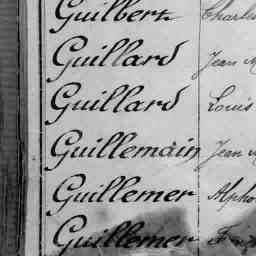 Guilbert Charles
Guillard Jean M
Guillard Louis
Guillemain Jean M
Guillemer Alpho
Guillemer